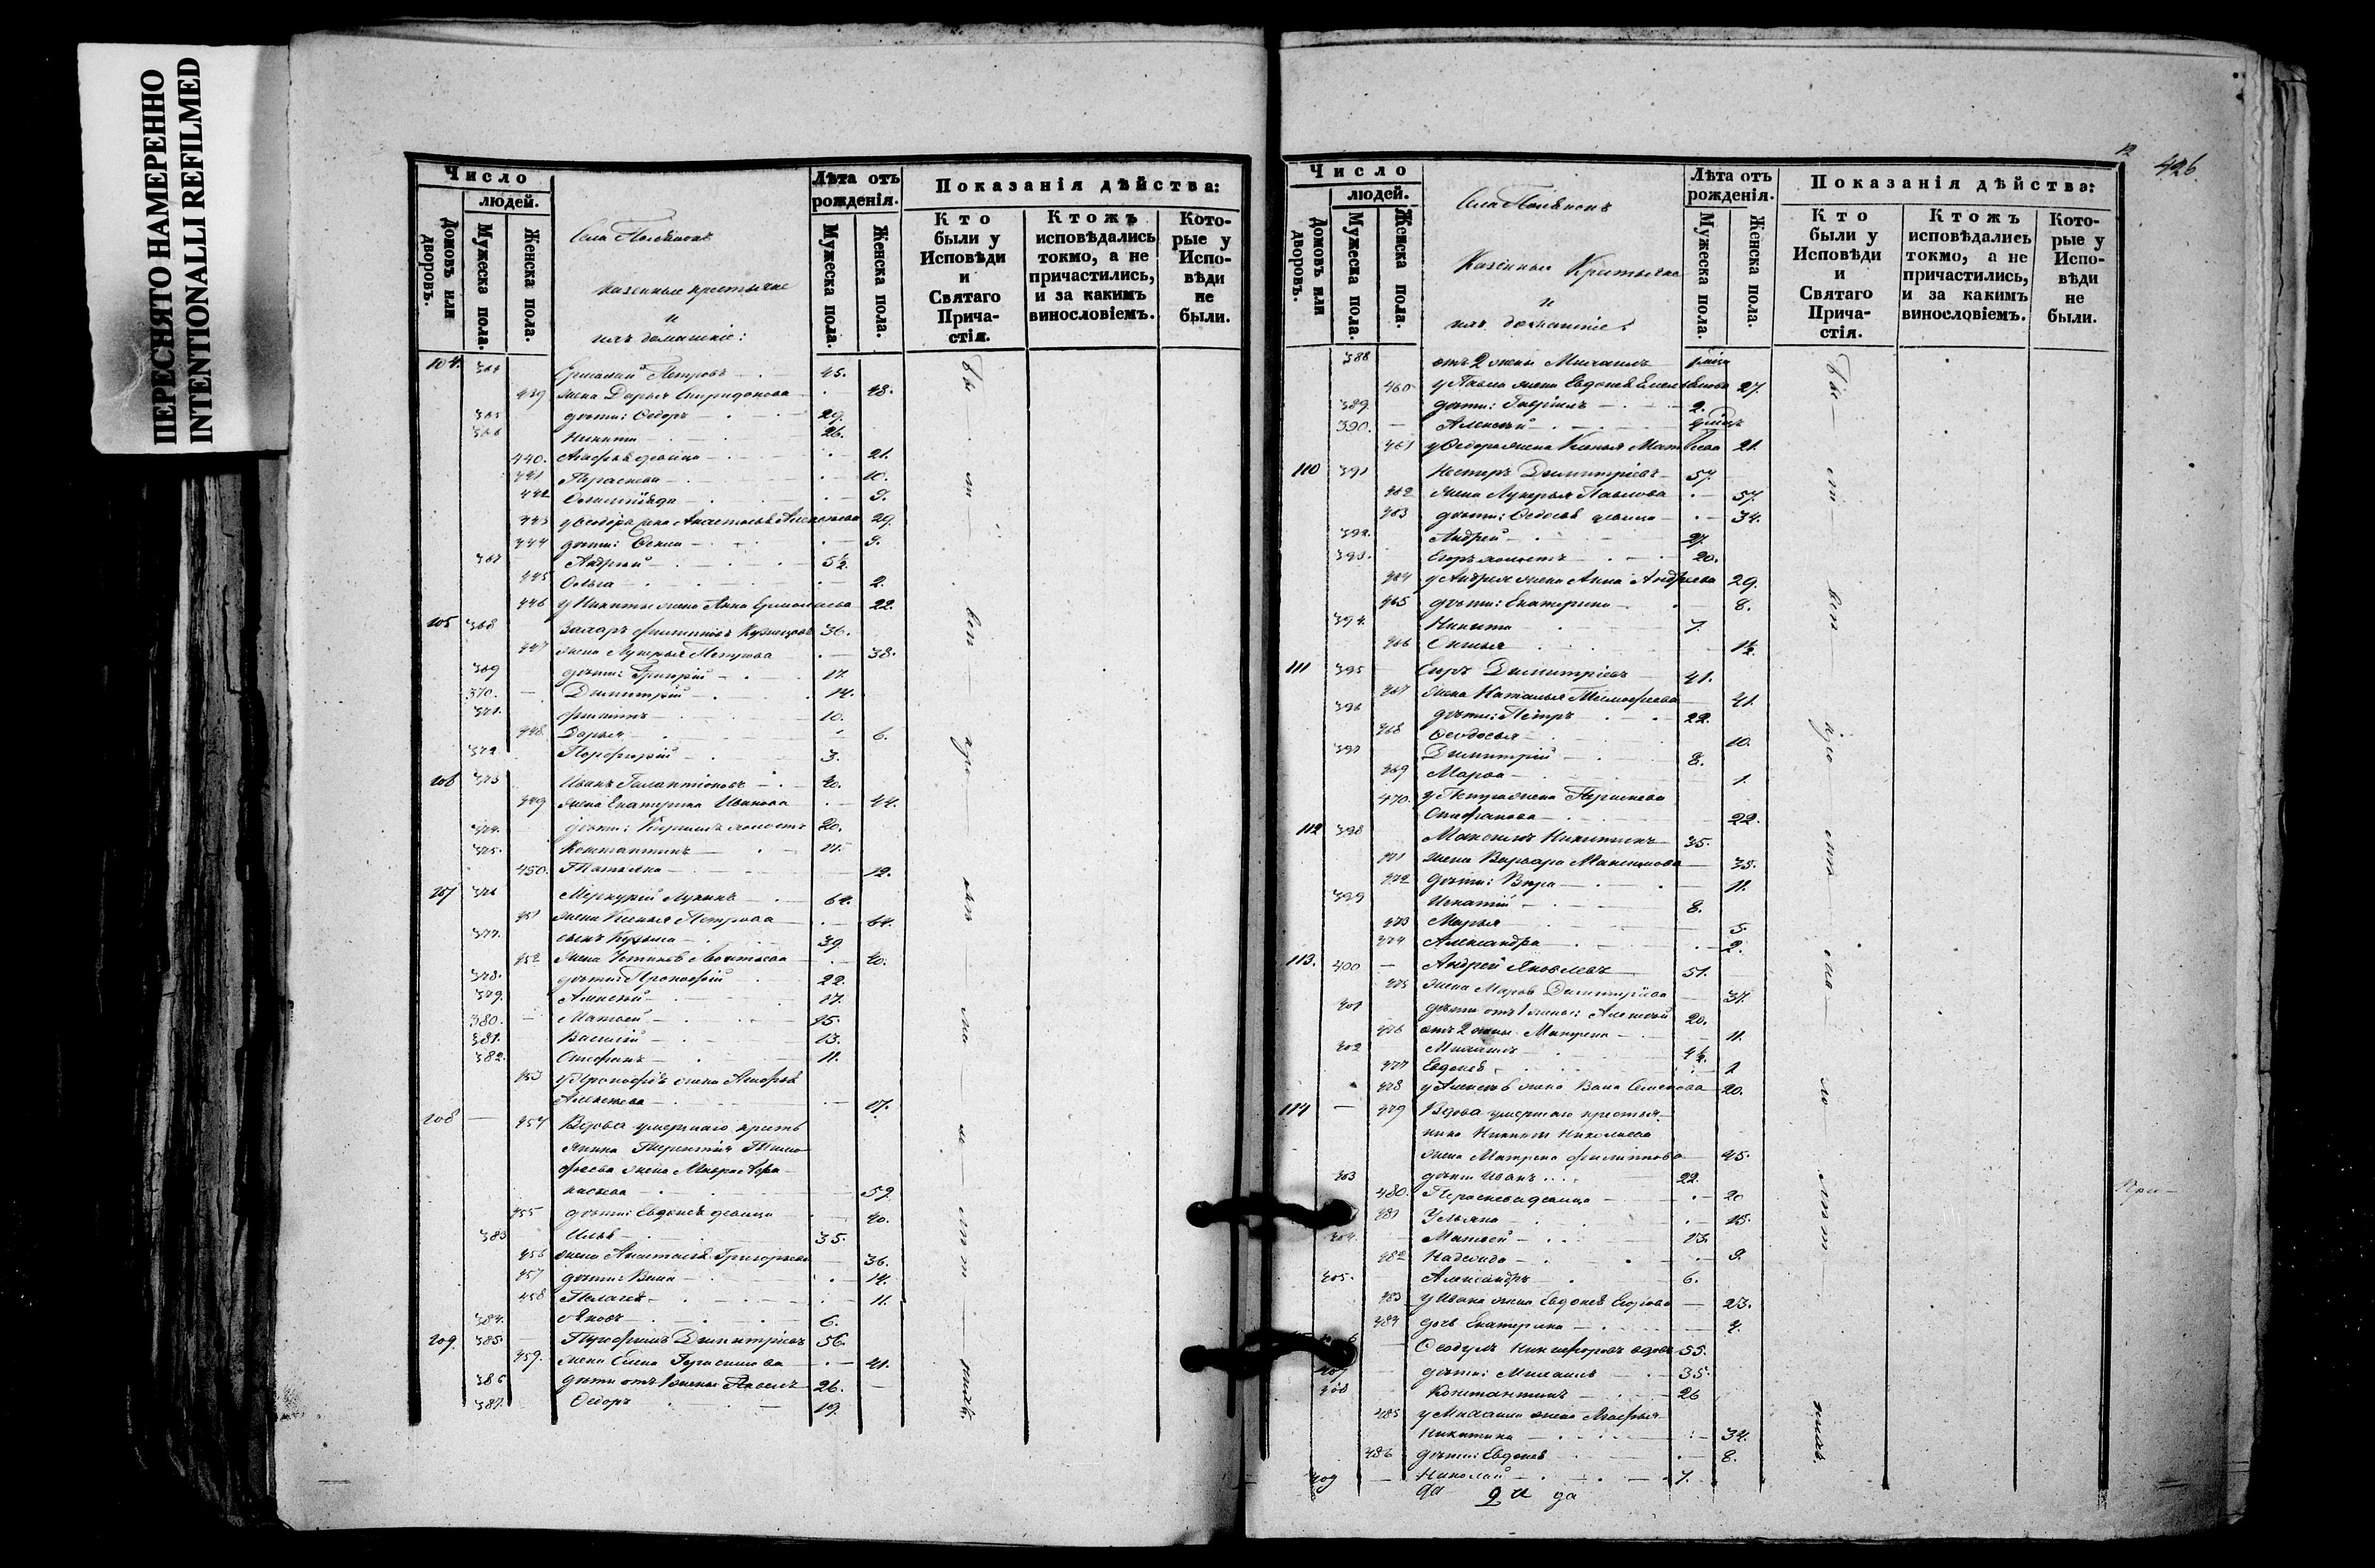 ПЕРЕСНЯТО НАМЕРЕННО
INTENTIONALLI REFILMED
Число
людей.
Домовъ или дворовъ.
Мужеска пола.
Женска пола.
Села
Казенные крестьяне
и
ихъ домашніе:
Лѣта отъ рожденія.
Мужеска пола.
Женска пола.
Показанія дѣйства:
Кто были у Исповѣди и Святаго Прича-стія.
Ктожъ исповѣдались токмо, а не причастились, и за какимъ винословіемъ.
Кото-рые у Испо-вѣди не были.
104. 364 Ермолай Петровъ 45.
439 жена Дарья Спиридонова 48.
365 дѣти: Ѳедоръ 29.
366 Никита 26.
440. Агафья дѣвица 21.
441 Параскева 10.
442 9.
443 у Ѳеодора жена Анастасія Алексѣева 29.
444 дѣти: 9.
367 Андрей 5½
445 Ольга 2.
446 у Никиты жена Анна Ермолаева 22.
105 368 Захаръ Филиповъ Кузнецовъ 36.
447 жена Лукерья Петрова 38.
369 дѣти: Григорій 17.
370. Димитрій 14.
371. Филипъ 10.
448 Дарья 6.
372. Порфирій 3.
106 373 Иванъ Галактіоновъ 40.
449 жена Екатерина Иванова 44.
374. дѣти: Кирилъ холостъ 20.
375. Константинъ
450. Татьяна 12.
107 376 Меркурій Лукинъ 64.
451 жена Ксенья Петрова 64.
377. сынъ Кузьма 39.
452 жена Устинья Леонтьева 40.
378. дѣти: Прокофій 22.
379. Алексѣй 17.
380. Матвей 15.
381. Василій 13.
382. Стефанъ 11.
453 у Прокофія жена Агафья
Алексѣева 17.
108 454 Вдова умершаго кресть
янина Терентія Тимо
фѣева жена Мавра Афа-
насьева 59.
455 дѣти: Евдокія дѣвица 40.
383 Илья 35.
456 жена Анастасія Григорьева 36.
457 дѣти: Васса 14.
458 Пелагея 11.
384. Яковъ 6.
109. 385. Димитріевъ 56.
459. жена Елена Герасимова 41.
386 дѣти отъ 1 жены: Павелъ 26.
387. Ѳедоръ 19.
Бы ли вси
12
426
Число
людей.
Домовъ или дворовъ.
Мужеска пола.
Женска пола.
Села
Казенные Крестьяне
и
ихъ домашніе:
Лѣта отъ рожденія.
Мужеска пола.
Женска пола.
Показанія дѣйства:
Кто были у Исповѣди и Святаго Прича-стія.
Ктожъ исповѣдались токмо, а не причастились, и за какимъ винословіемъ.
Кото-рые у Испо-вѣди не были.
388 отъ 2 жены Михаилъ
460 у Павла жена Евдокія Емельянова 27.
389. дѣти: Гавріилъ 2.
390. Алексѣй
461 у Ѳедора жена Ксенья Матвѣева 21.
110 391 Нестеръ Димитріевъ 57.
462 жена Лукерья Павлова 57.
463 дѣти: Ѳедосья дѣвица 34.
392. Андрей 27.
393. Егоръ холостъ 20.
464 у Андрея жена Анна Андреева 29.
465 дѣти: Екатерина 8.
394. Никита 7.
466 1½
111 395 Егоръ Димитріевъ 41.
467 жена Наталья Тимофѣева 41.
396 дѣти: Петръ 22.
468 Ѳеодосья 10.
397 Димитрій 8.
469 Марѳа 1.
470. у Петра жена Параскева
Стефанова 22.
112 398 Максимъ Никитинъ 35.
471 жена Варвара Максимова 35.
472 дѣти: Вѣра 11.
399 Игнатій 8.
473 Марья 5.
474 Александра 2.
113. 400 Андрей Яковлевъ 51.
475 жена Марѳа Димитріева 37.
401 дѣти отъ 1 жены: Алексѣй 20.
476 отъ 2 жены Матрена 11.
402 Михаилъ 4½
477 Евдокія 1
478 у Алексѣя жена Васса Семенова 20.
114 479 Вдова умершаго крестья-
нина Никиты Николаева
жена Матрена Филиппова 45.
403 дѣти Иванъ 22.
480. Параскева дѣвица 20
481 Ульяна 15.
404. Матвей 13.
482 Надежда 9.
405. Александръ 6.
483 у Ивана жена Евдокія Егорова 23.
484 дочь Екатерина
Ѳеодулъ Никифоровъ вдовъ 55.
407 дѣти: Михаилъ 35.
408 Константинъ 26
485 у Михаила жена Агафья
Никитина 34.
486 дѣти: Евдокія 8.
409 Николай 7.
Бы ли вси